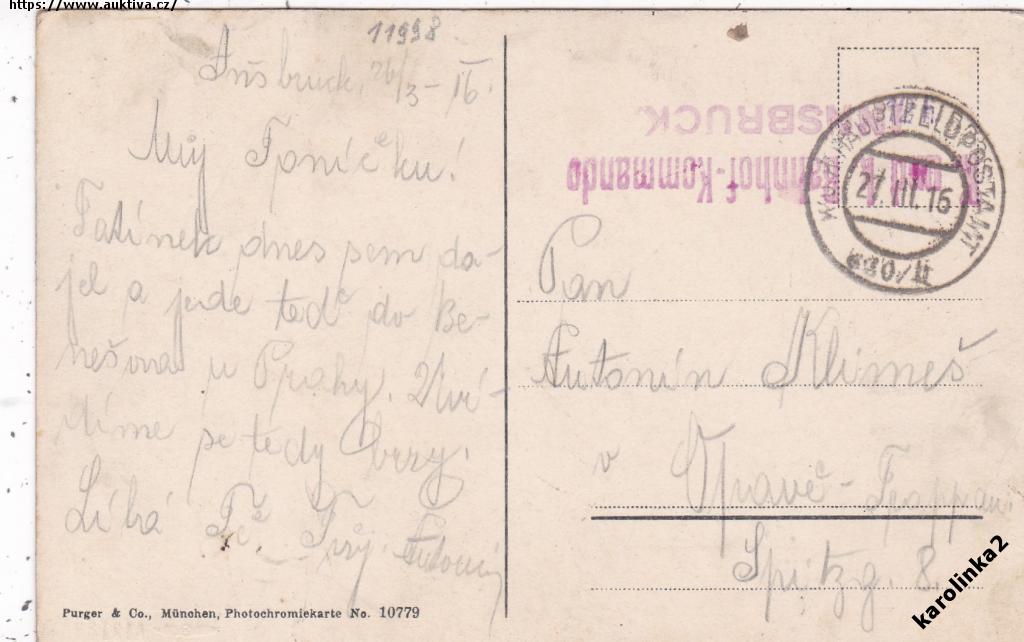 https://www.auktiva.cz/
11998
Insbruck, 26/3 - 16.
Můj Toníčku!
Tatínek dnes sem do-
jel a jede teď do Be-
nešova u Prahy. Uvi-
díme se tedy brzy.
Líbá Tě. Tvůj Antonín
Purger & Co., München, Photochromiekarte No. 10779
INNSBRUCK.
Bahnhof-Kommando
K.u.K. HAUPTFELDPOSTAMT
27.III.16
Pan
Antonín Klimeš
v Opavě - Troppau
Spitzg. 8.
karolinka2